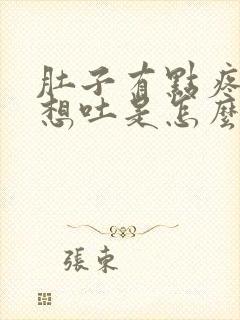 肚子有點疼
想吐是怎麼
張東